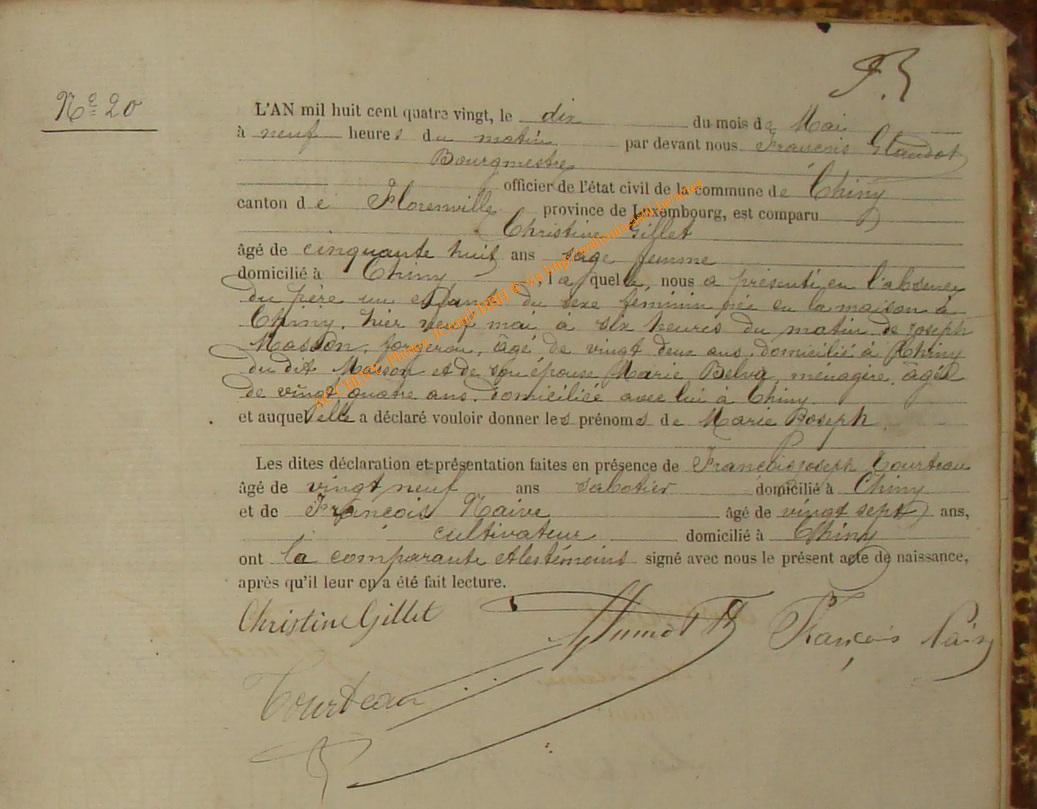 Nº 20
L'AN mil huit cent quatre vingt, le dix du mois de Mai
à neuf heures du matin par devant nous François
Bourgmestre
officier de l'état civil de la commune de Chiny
canton de Florenville province de Luxembourg, est comparu
Christine Gillet
âgé de cinquante huit ans sage femme
domicilié à Chiny, laquelle, nous a présenté, en l'absence
du père un enfant du sexe feminin née en la maison à
Chiny, hier neuf mai à six heures du matin de Joseph
Masson, forgeron, âgé de vingt deux ans, domicilié à Chiny
du dit Masson et de son épouse Marie Belva, ménagère, âgée
de vingt quatre ans, domiciliée avec lui à Chiny
et auquel elle a déclaré vouloir donner les prénoms de Marie Joseph
Les dites déclaration et présentation faites en présence de François Joseph Tourteau
âgé de vingt neuf ans sabotier domicilié à Chiny
et de François Naive âgé de vingt sept ans,
cultivateur domicilié à Chiny
ont la comparante et les témoins signé avec nous le présent acte de naissance,
après qu'il leur en a été fait lecture.
Christine Gillet François
Tourteau